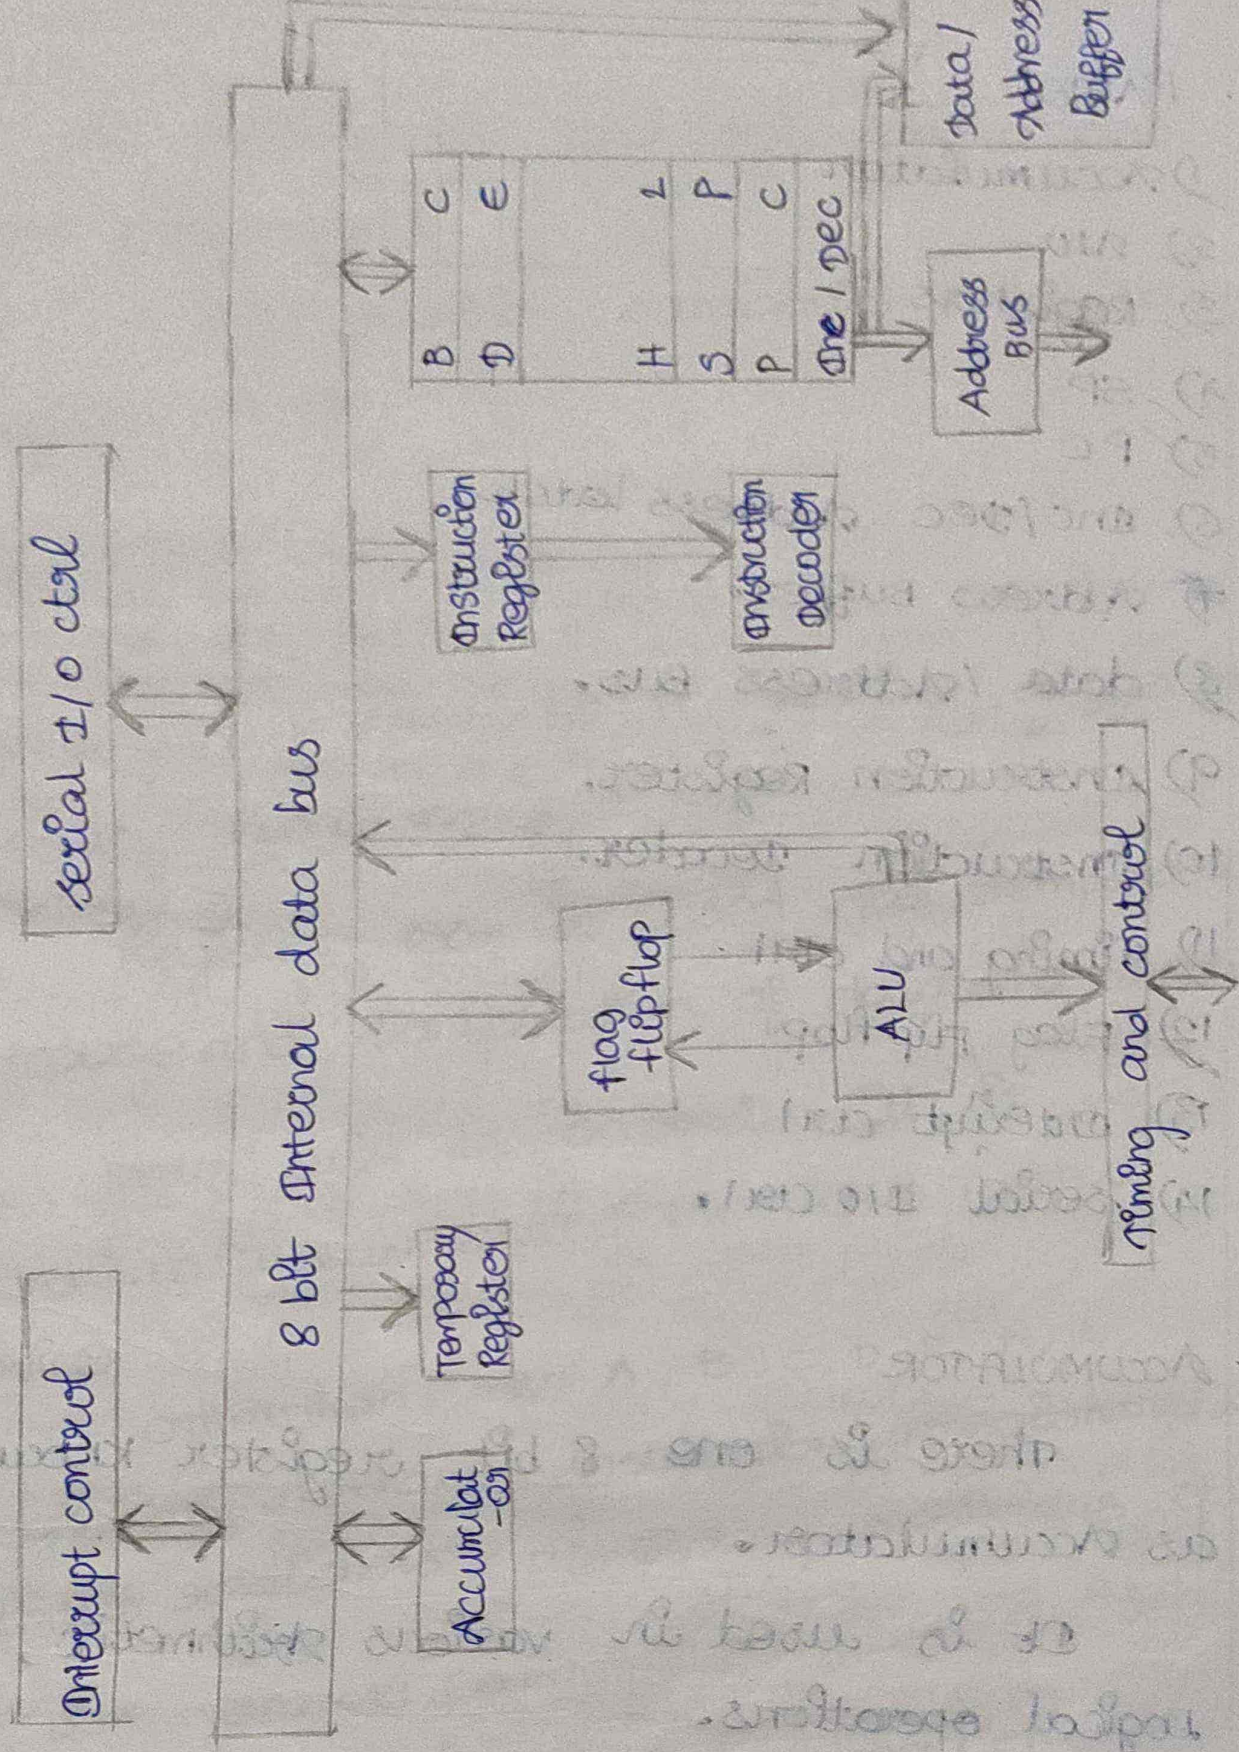 Interrupt control
serial I/O ctrl
8 bit Internal data bus
Accumulat
-or
Temporary
Register
flag
flipflop
ALU
Timing and control
Instruction
Register
Instruction
Decoder
B C
D E
H L
S P
P C
Inc / Dec
Address
Bus
Data /
Address
Buffer